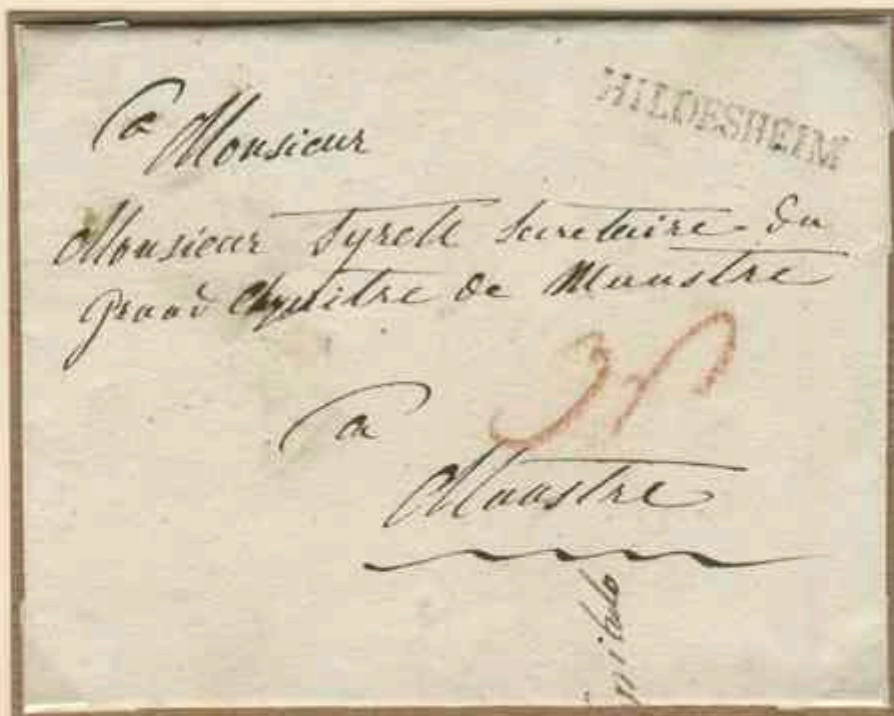 HILDESHEIM
a Monsieur
Monsieur Tyrell Secretaire du
grand Chapitre de Munstre
a
Munstre